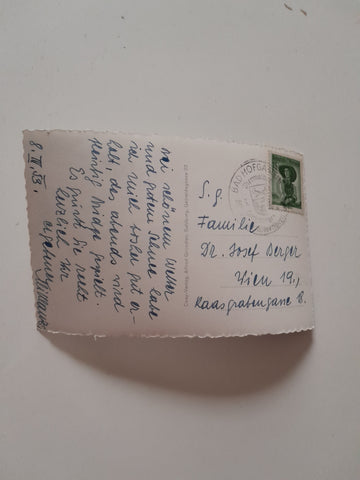 8. III 53.
Bei schönem Wetter
und gutem Schnee habe
ich mich schon gut er-
holt, des abends wird
fleißig Bridge gespielt.
Es grüßt Sie recht
herzlich Ihr
ergebener
Cosy-Verlag, Alfred Gründler, Salzburg, Getreidegasse 22
BAD HOFGA
S. g.
Familie
Dr. Josef Berger
Wien 19.,
Kaasgrabengasse 8.